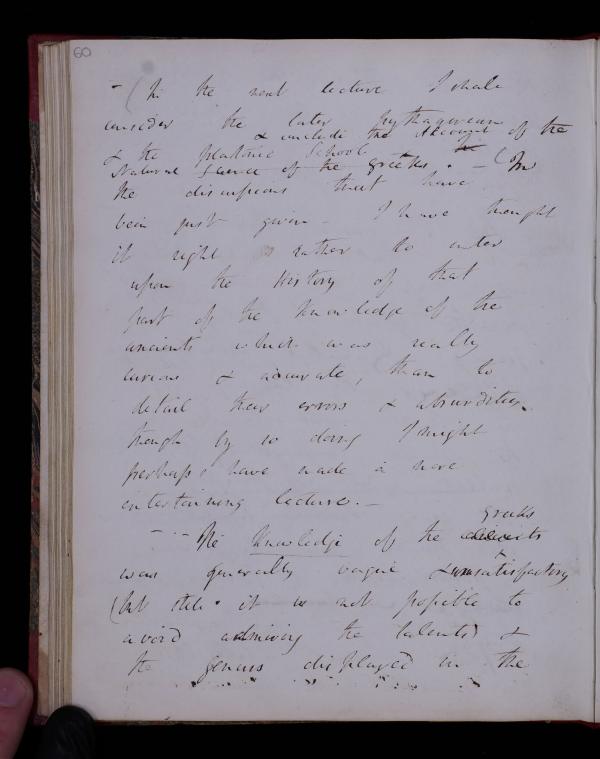 60
- (In the next lecture I shall
consider the later Pythagoreans
& include the Account of the
& the platonic School
Natural Science of the greeks. - (In
the discussions that have
been just given - I have thought
it right rather to enter
upon the History of that
part of the Knowledge of the
ancients which was really
curious & accurate, than to
detail their errors & absurdities,
though by so doing I might
perhaps have made a more
entertaining lecture. -
greeks
- - - The Knowledge of the ancients
was generally vague & unsatisfactory
(but still it is not possible to
avoid admiring the talents &
the genius displayed in the